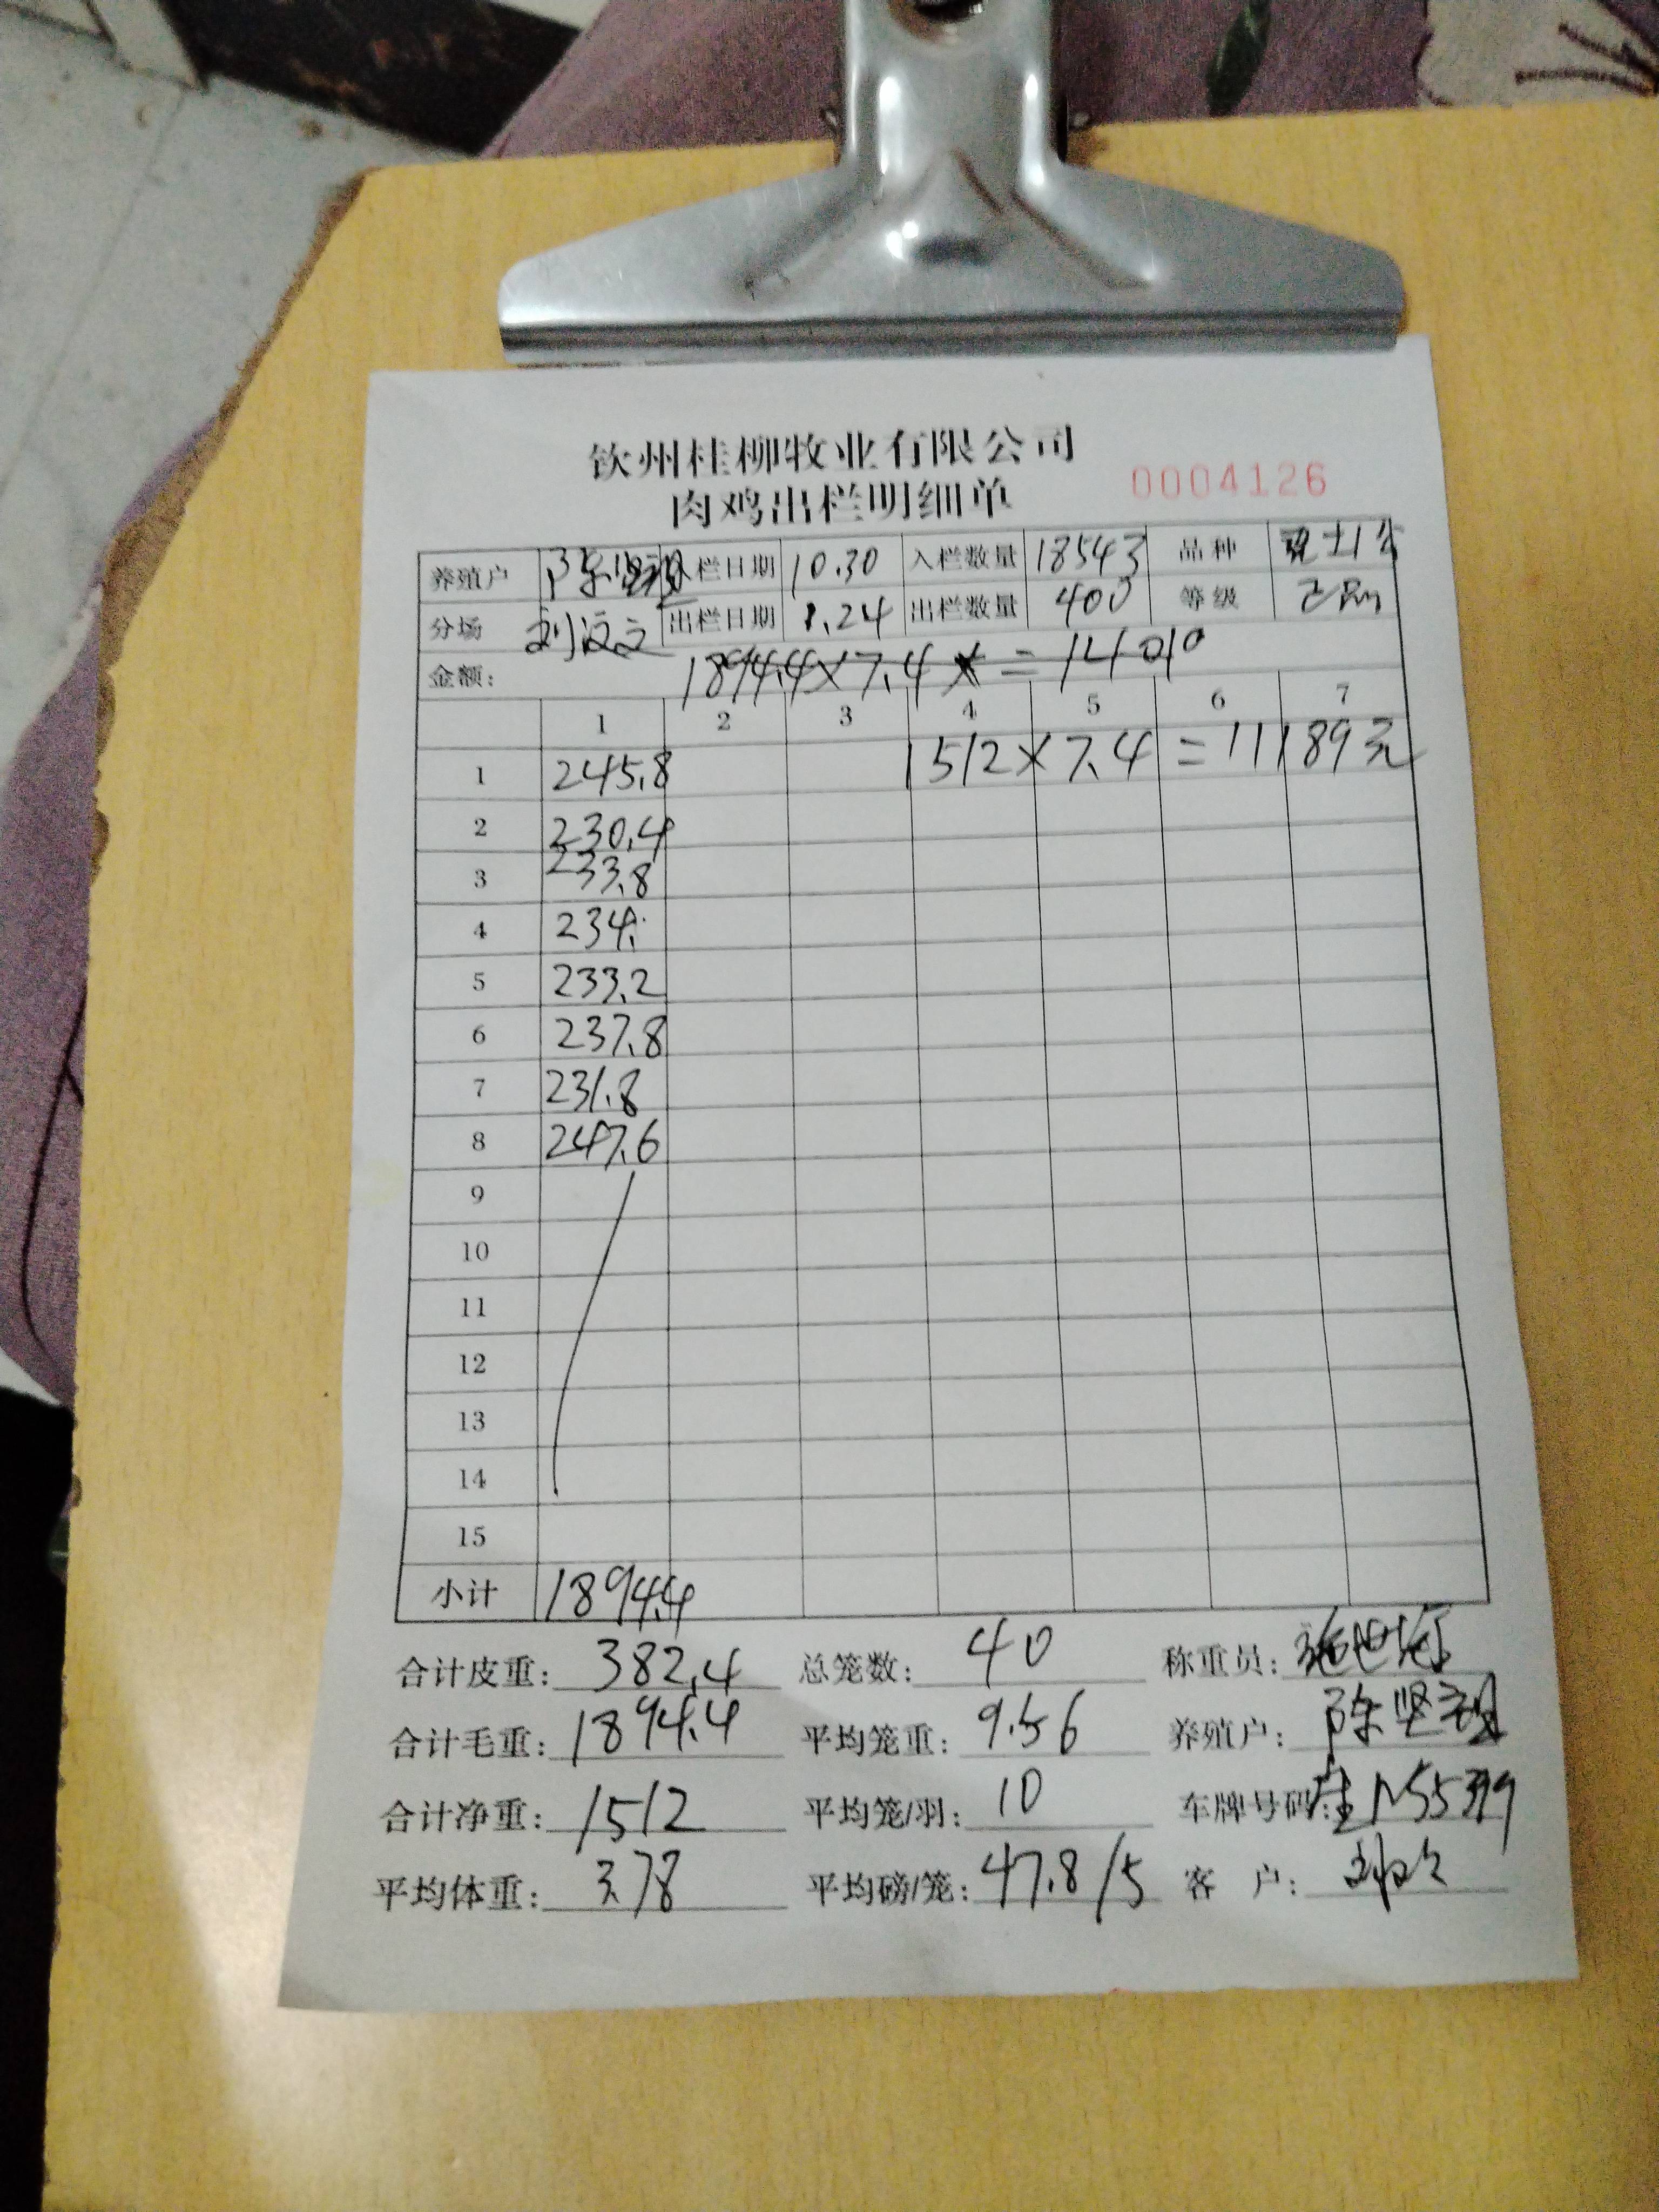 钦州桂柳牧业有限公司
肉鸡出栏明细单 0004126
养殖户 入栏日期 10.30 入栏数量 18543 品种
分场 出栏日期 1.24 出栏数量 400 等级
金额: 1894.4×7.4 = 14010
1 2 3 4 5 6 7
1 245.8 1512×7.4=11189元
2 230.4
3 233.8
4 234.
5 233.2
6 237.8
7 231.8
8 247.6
9
10
11
12
13
14
15
小计 1894.4
合计皮重: 382.4 总笼数: 40 称重员:
合计毛重: 1894.4 平均笼重: 9.56 养殖户: 陈坚祝
合计净重: 1512 平均笼/羽: 10 车牌号码:
平均体重: 3.78 平均磅/笼: 47.8/5 客户: